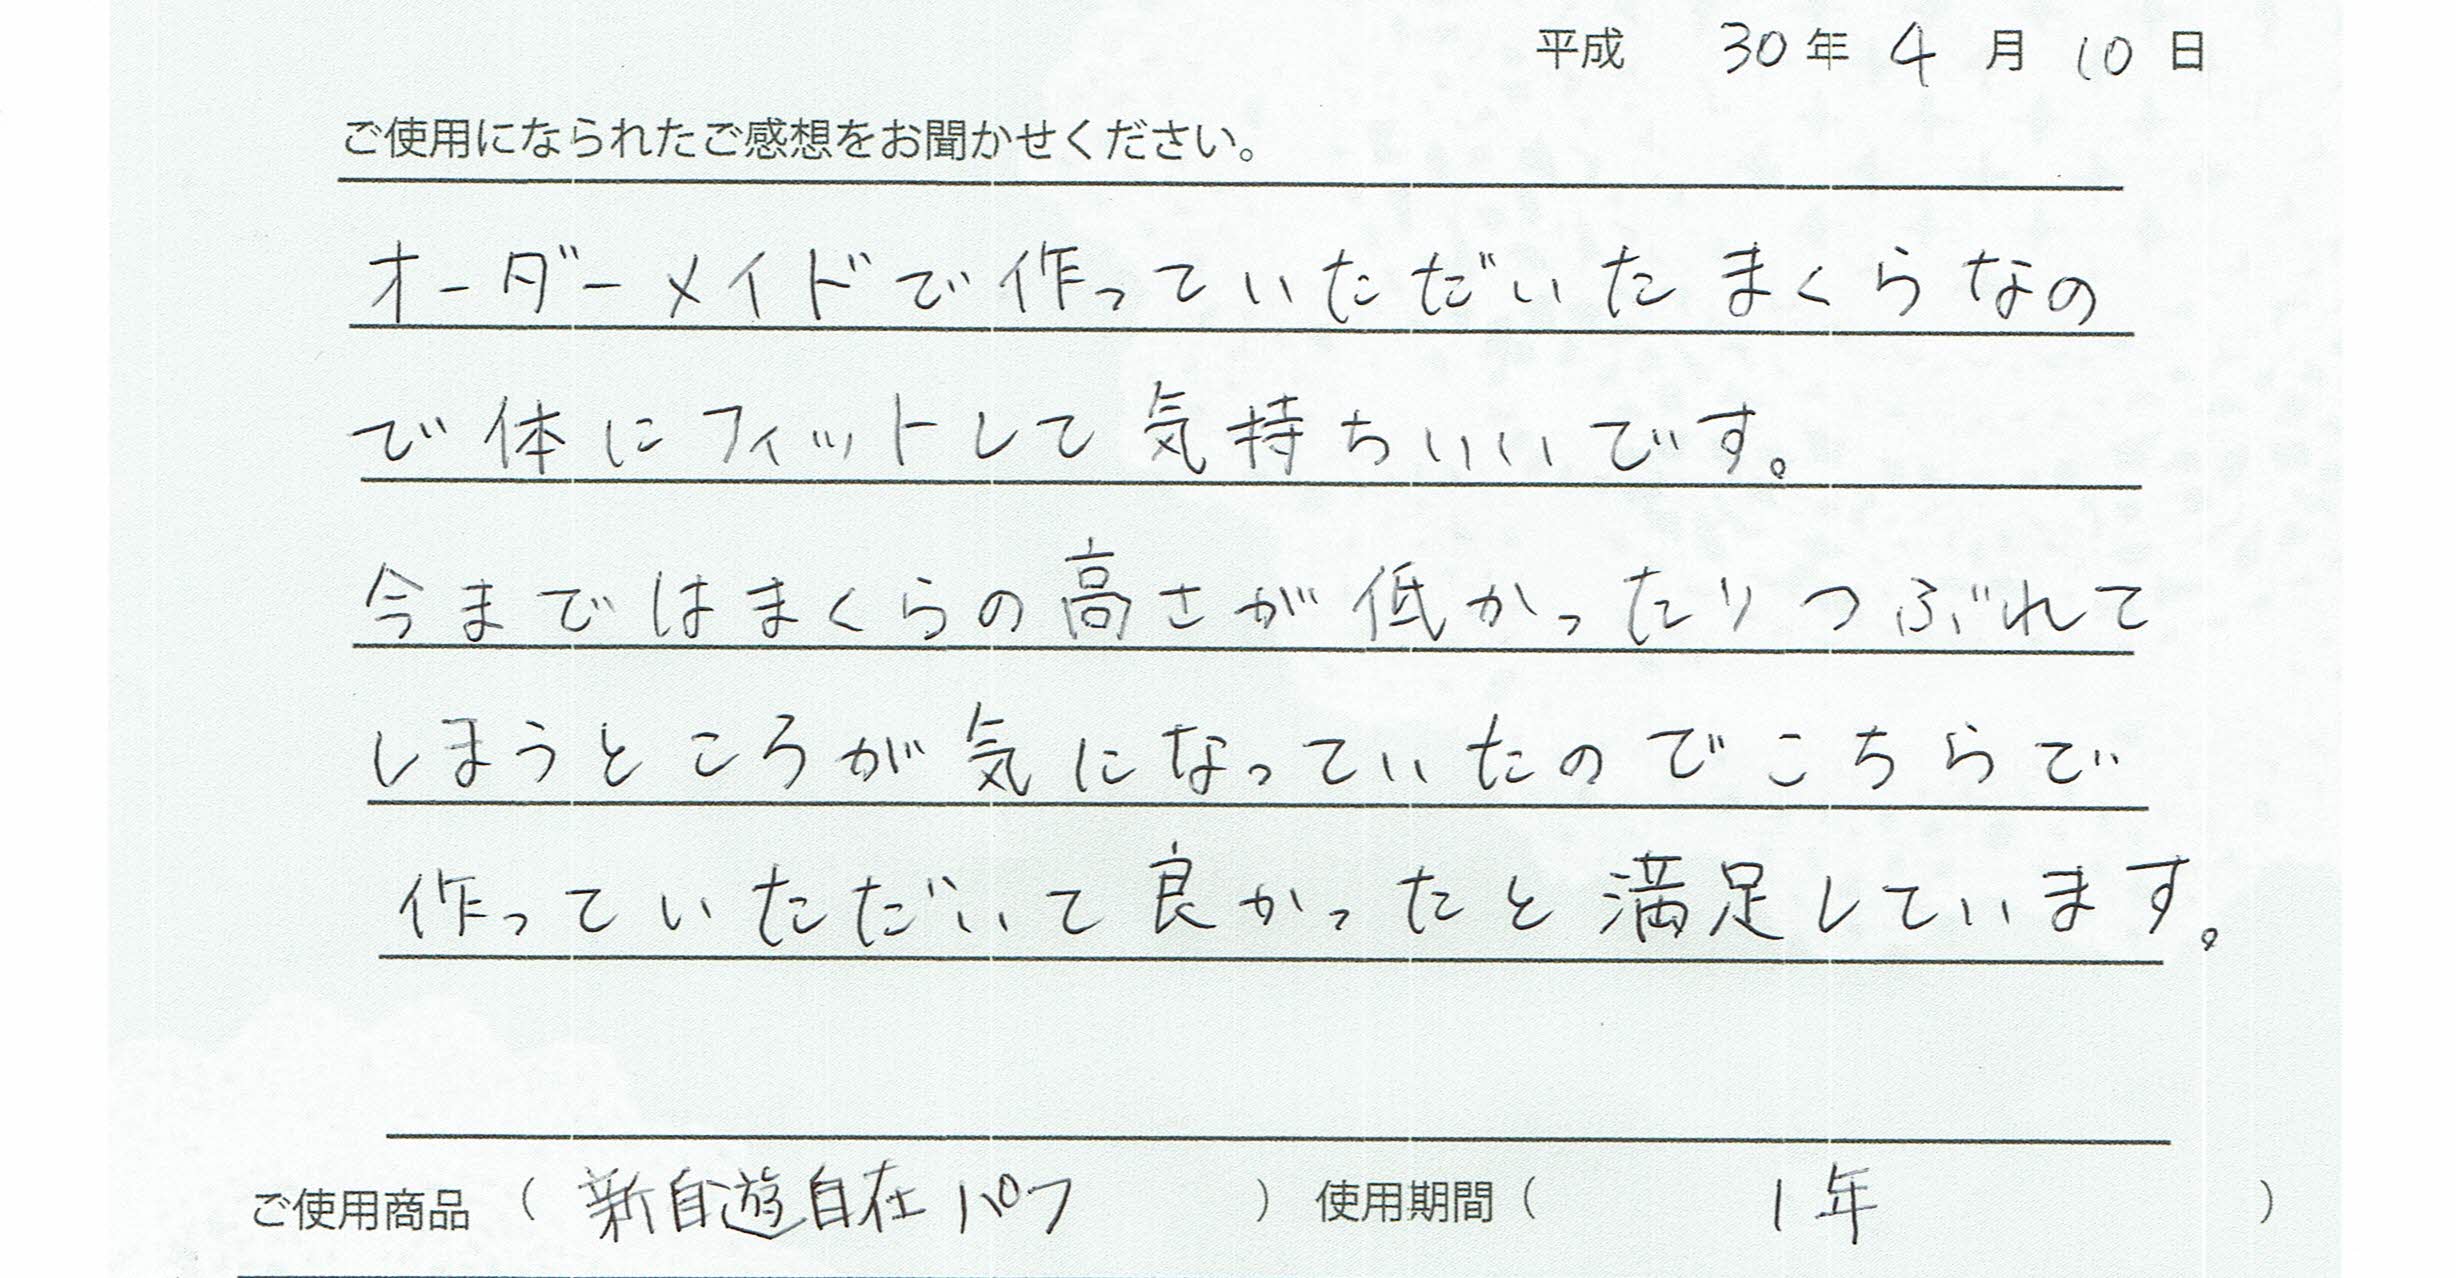 平成 30年 4月 10日
ご使用になられたご感想をお聞かせください。
オーダーメイドで作っていただいたまくらなの
で体にフィットして気持ちいいです。
今まではまくらの高さが低かったりつぶれて
しまうところが気になっていたのでこちらで
作っていただいて良かったと満足しています。
ご使用商品（新自遊自在パフ）使用期間（1年）